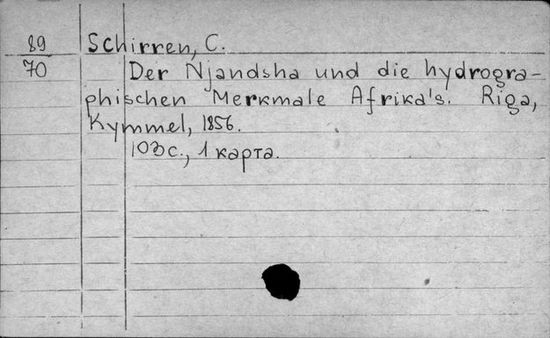 89 Schirren, C.
70 Der Njandsha und die hydrogra-
phischen Merkmale Afrika's. Riga,
Kymmel, 1856.
103 с., 1 карта.